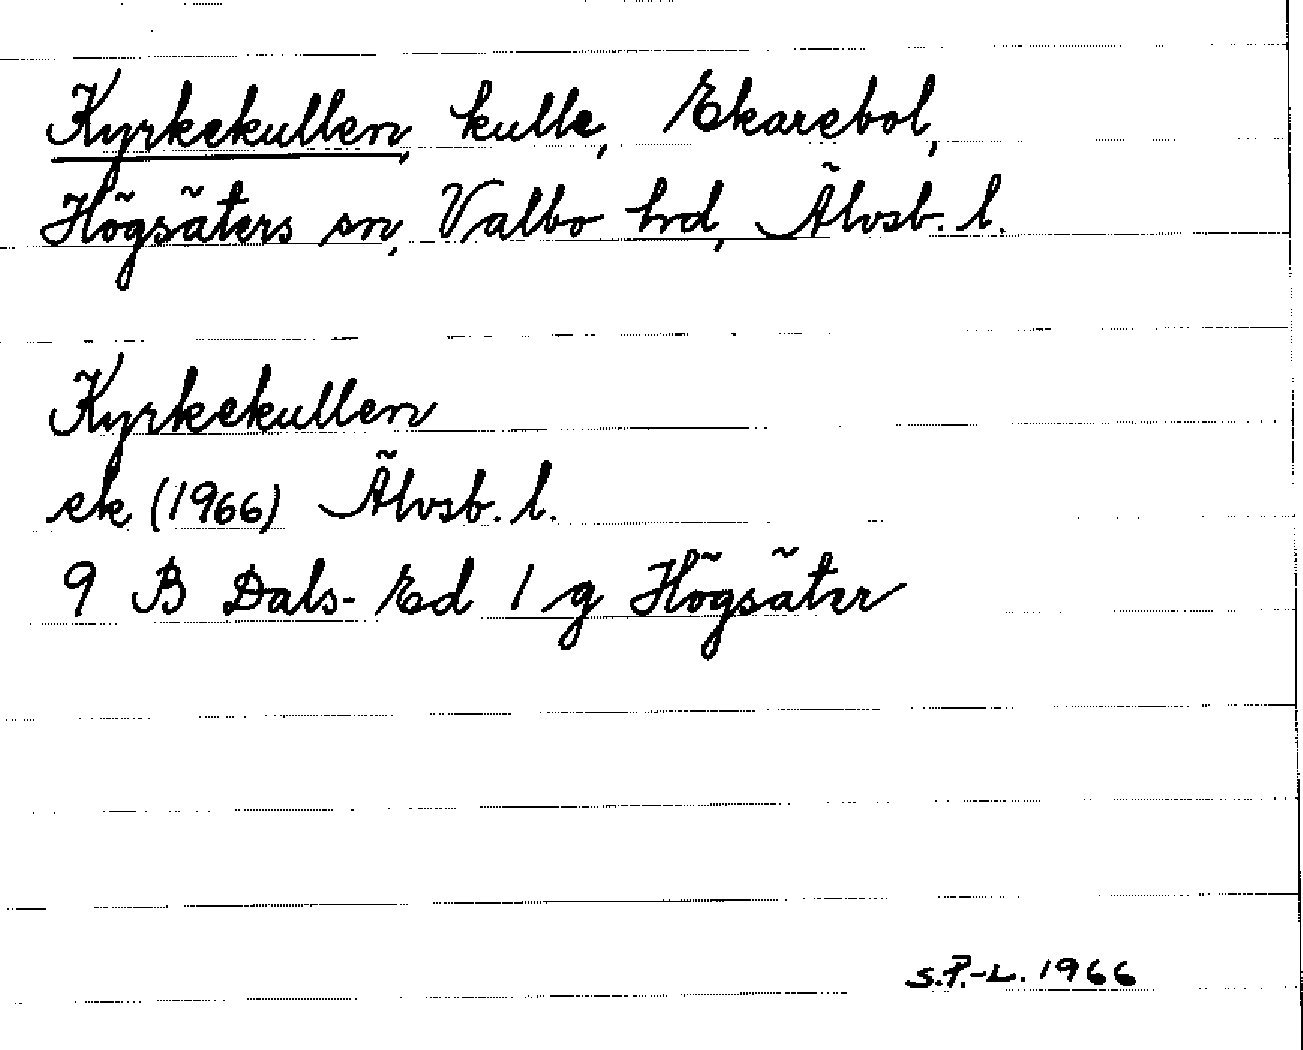 Kyrkekullen, kulle, Ekarebol,
Högsäters sn, Valbo hrd, Älvsb. l.
Kyrkekullen
ek (1966) Älvsb. l.
9 B Dals-Ed 1 g Högsäter
S.P.-L. 1966